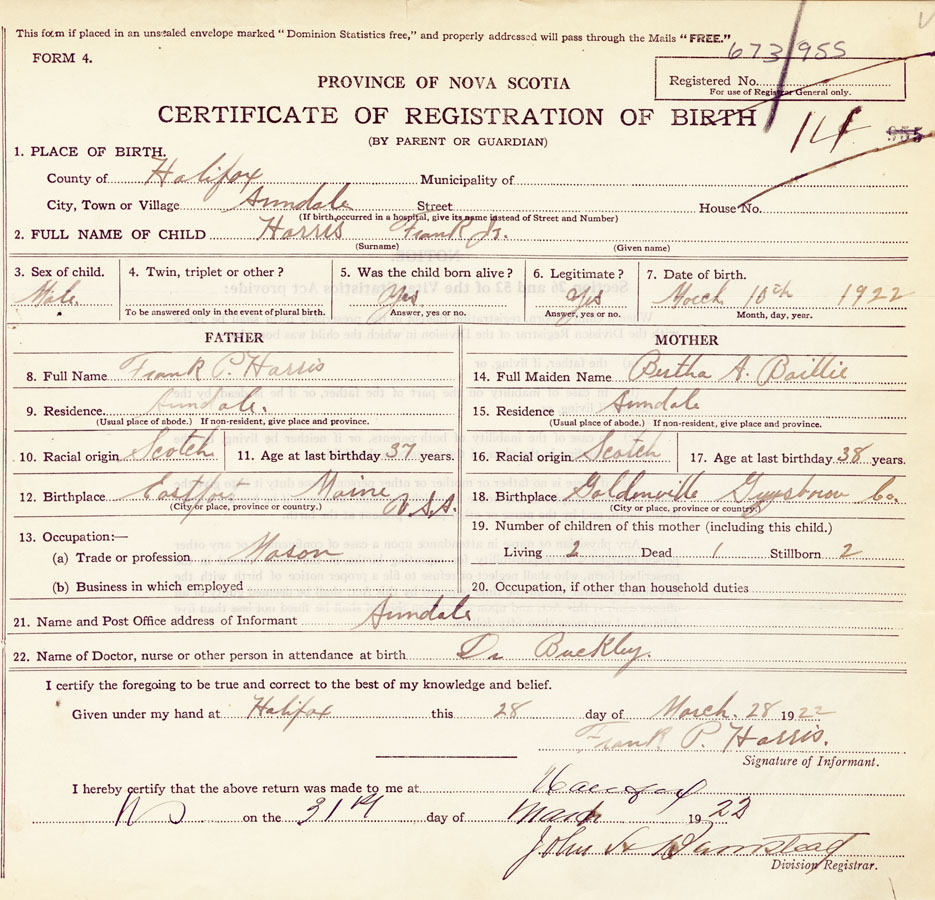 This form if placed in an unsealed envelope marked "Dominion Statistics free," and properly addressed will pass through the Mails "FREE."
FORM 4.
673/955
PROVINCE OF NOVA SCOTIA
Registered No.
For use of Registrar General only.
CERTIFICATE OF REGISTRATION OF BIRTH
14 955
(BY PARENT OR GUARDIAN)
1. PLACE OF BIRTH.
County of Halifax Municipality of
City, Town or Village Armdale Street House No.
(If birth occurred in a hospital, give its name instead of Street and Number)
2. FULL NAME OF CHILD Harris Frank Jr.
(Surname) (Given name)
3. Sex of child. 4. Twin, triplet or other? 5. Was the child born alive? 6. Legitimate? 7. Date of birth.
Male Yes Yes March 10th 1922
To be answered only in the event of plural birth. Answer, yes or no. Answer, yes or no. Month, day, year.
FATHER
8. Full Name Frank P. Harris
9. Residence Armdale.
(Usual place of abode.) If non-resident, give place and province.
10. Racial origin Scotch 11. Age at last birthday 37 years.
12. Birthplace Eastport Maine U.S.A.
(City or place, province or country.)
13. Occupation:—
(a) Trade or profession Mason
(b) Business in which employed
MOTHER
14. Full Maiden Name Bertha A. Baillie
15. Residence Armdale
(Usual place of abode.) If non-resident, give place and province.
16. Racial origin Scotch 17. Age at last birthday 38 years.
18. Birthplace Goldenville Guysboro Co.
(City or place, province or country.)
19. Number of children of this mother (including this child.)
Living 2 Dead 1 Stillborn 2
20. Occupation, if other than household duties
21. Name and Post Office address of Informant Armdale
22. Name of Doctor, nurse or other person in attendance at birth Dr Buckley.
I certify the foregoing to be true and correct to the best of my knowledge and belief.
Given under my hand at Halifax this 28 day of March. 28 1922
Frank P. Harris.
Signature of Informant.
I hereby certify that the above return was made to me at Halifax
NS on the 31st day of March 1922
John A
Division Registrar.